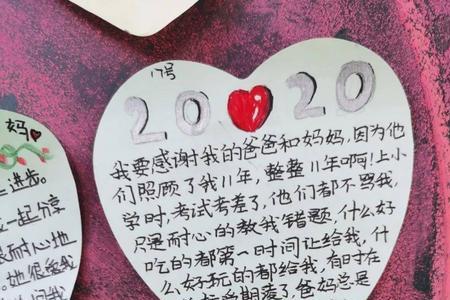 17号
2020
我要感谢我的爸爸和妈妈,因为他
们照顾了我11年,整整11年啊!上小
学时,考试考差了,他们都不骂我,
只是耐心的教我错题,什么好
吃的都第一时间让给我,什
么好玩的都给我,有时在
爸妈总是
妈
进步。
一起分享
耐心地